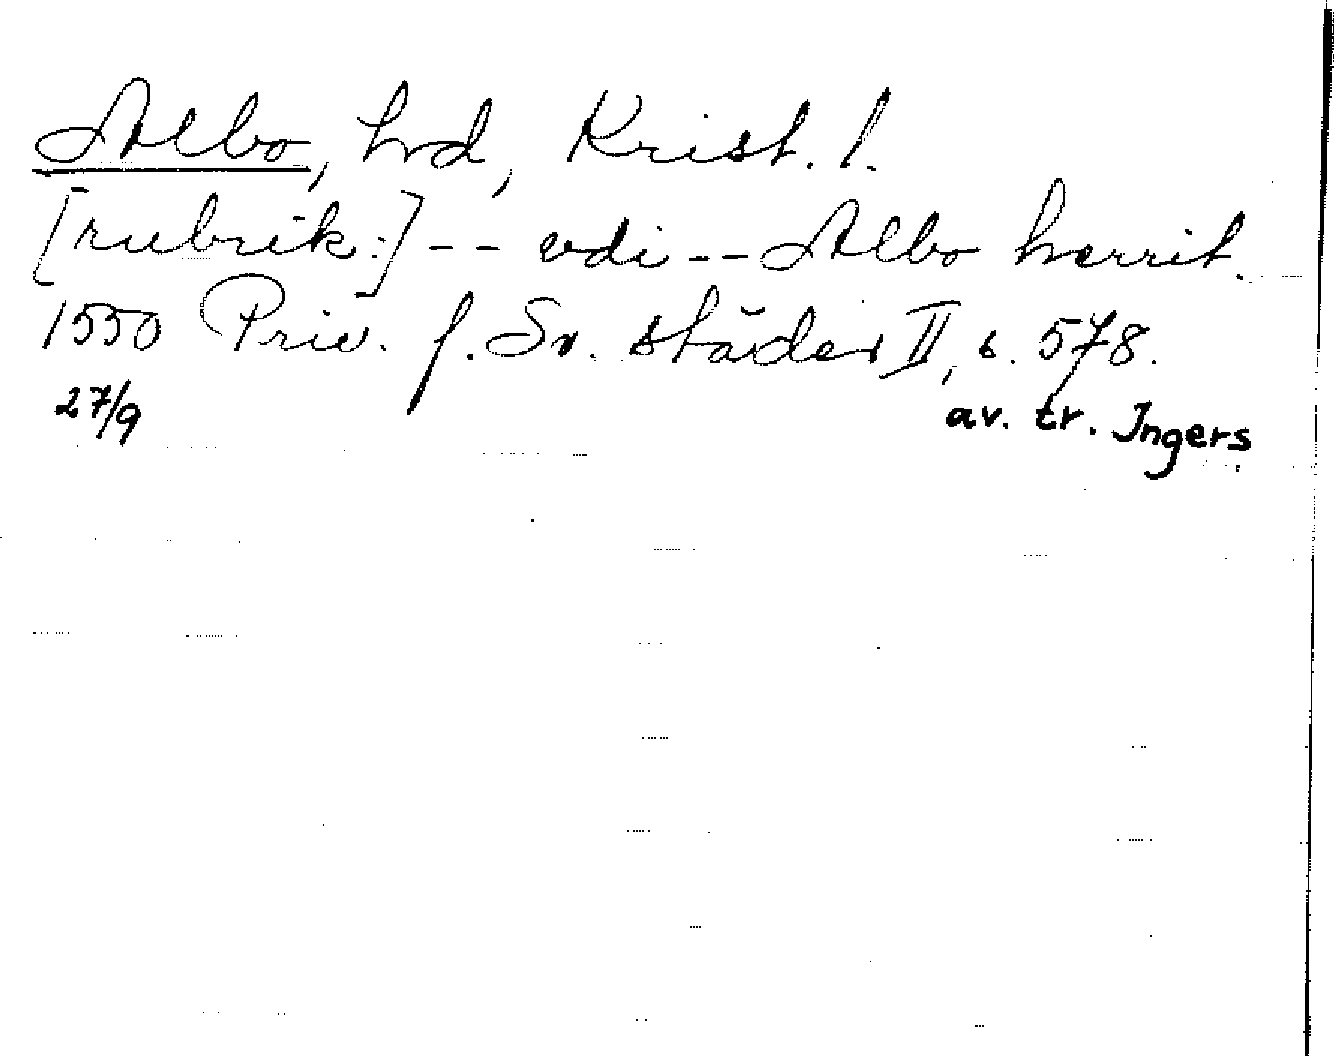 Albo, hrd, Krist. l.
[rubrik:] -- vdi -- Albo herrit.
1550 Priv. f. Sv. städer II, s. 578.
27/9 av. tr. Ingers